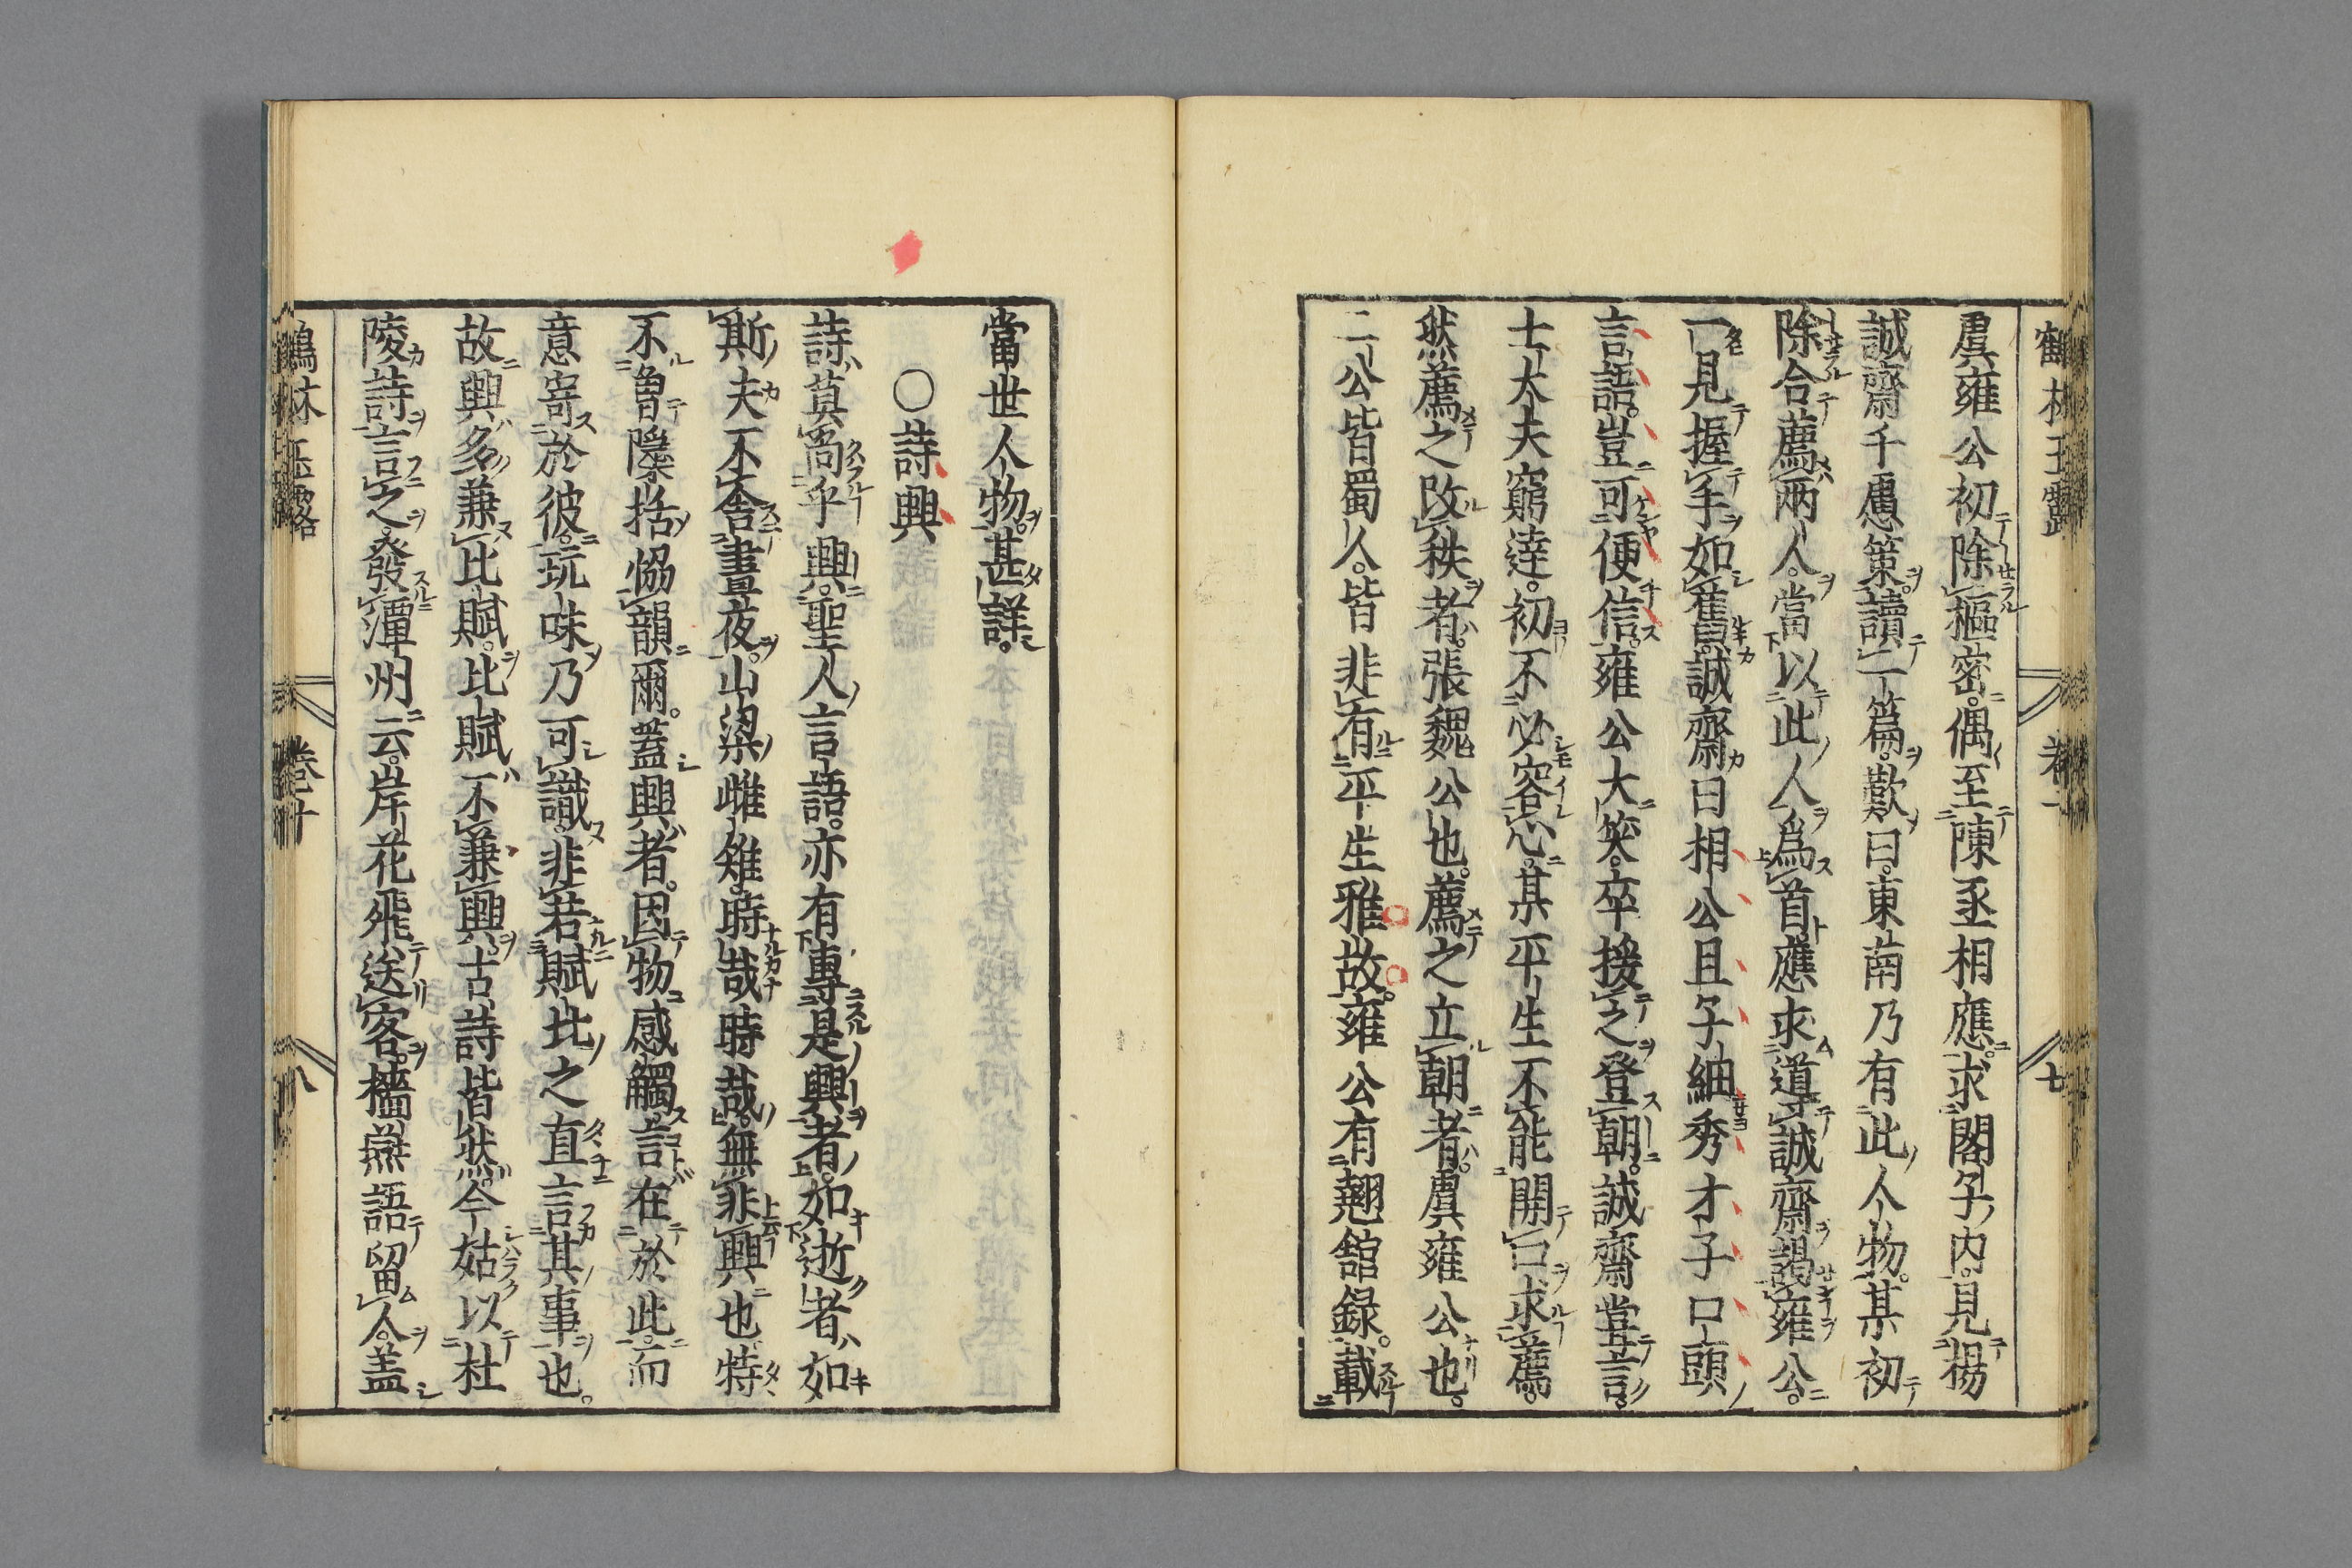 鶴林玉露 卷十 七
虞雍公初除樞密。偶至陳丞相應求閣子内。見楊
誠齋千慮策。讀一篇。歎曰。東南乃有此人物。某初
除合薦兩人。當以此人爲首應求導誠齋謁雍公。
一見握手如舊。誠齋曰相公且子細秀才子口頭
言語。豈可便信。雍公大笑。卒援之登朝。誠齋嘗言。
士大夫窮達。初不必容心。某平生不能開口求薦。
然薦之改秩者。張魏公也。薦之立朝者。虞雍公也。
二公皆蜀人。皆非有平生雅故。雍公有翹舘録。載
當世人物。甚詳。
○詩興
詩莫尚乎興。聖人言語。亦有專是興者。如逝者如
斯夫不舍晝夜。山梁雌雉。時哉時哉。無非興也特
不曾隱括恊韻爾。蓋興者。因物感觸。言在於此。而
意寄於彼。玩味乃可識。非若賦比之直言其事也。
故興多兼比賦。比賦不兼興。古詩皆然。今姑以杜
陵詩言之。發潭州云。岸花飛送客。檣燕語留人。盖
鶴林玉露 卷十 八